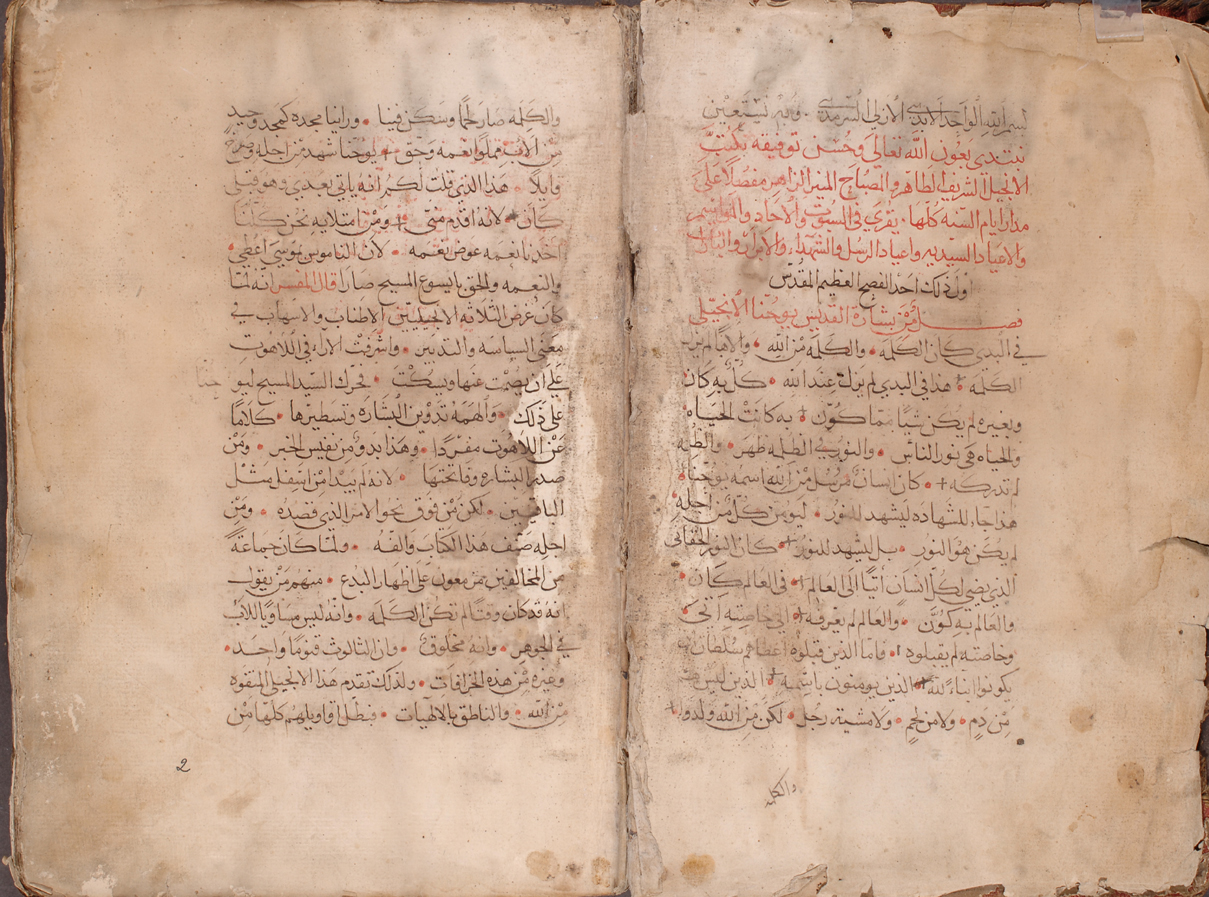 بسم الله الواحد الابدي الازلي السرمدي وبه نستعين
نبتدي بعون الله تعالى وحسن توفيقه نكتب
الانجيل الشريف الطاهر والمصباح المنير الزاهر مفصلا على
مدار ايام السنه كلها يقرى في السبوت والاحاد والمواسم
والاعياد السيديه واعياد الرسل والشهداء والابرار
اول ذلك احد الفصح العظيم المقدس
فصل من بشارة القديس يوحنا الانجيلي
في البدي كان الكلمه • والكلمه من الله • والاها لم يزل
الكلمه + هذا في البدي لم يزل عند الله • كل به كان
وبغيره لم يكن شيا مما كون + به كانت الحياه
والحياه هي نور الناس • والنور في الظلمه ظهر • والظلمه
لم تدركه + كان انسان مرسل من الله اسمه يوحنا •
هذا جاء للشهاده ليشهد للنور • ليومن كل من اجله
لم يكن هو النور • بل ليشهد للنور + كان النور الحقاني
الذي يضي لكل انسان اتيا الى العالم + في العالم كان •
والعالم به كون • والعالم لم يعرفه + الى خاصته اتى
وخاصته لم يقبلوه + فاما الذين قبلوه اعطاهم سلطان
يكونوا ابناء لله + الذين يومنون باسمه + الذين ليس
من دم • ولا من لحم • ولا مشية رجل • لكن من الله ولدوا +
والكلمه
والكلمه صار لحما وسكن فينا • وراينا مجده كمجد وحيد
من الاب مملوا نعمه وحق + يوحنا شهد من اجله وصرخ
قايلا • هذا الذي قلت لكم انه ياتي بعدي وهو قبلي
كان • لانه اقدم مني + ومن امتلايه نحن كلنا
اخذنا نعمه عوض نعمه • لان الناموس بموسى اعطي •
والنعمه والحق بايسوع المسيح صارا قال المفسر انه لما
كان غرض الثلاثه الانجيليين الاطناب والاسهاب في
معنى السياسه والتدبير • واشرفت الاراء في اللاهوت
على ان يصمت عنها ويسكت • فحرك السيد المسيح ليوحنا
على ذلك • والهمه تدوين البشاره وتسطيرها • كلاما
عن اللاهوت مفردا • وهذا بدو من نفيس الخبر • ومن
صدر البشاره وفاتحتها • لانه لم يبدا من اسفل مثل
الباقيين • لكن من فوق نحو الامر الذي قصده • ومن
اجله صنف هذا الكتاب والفه • ولما كان جماعة
من المخالفين مزمعون على اظهار البدع • منهم من يقول
انه قد كان وقتا لم تكن الكلمه • وانه ليس مساويا للاب
في الجوهر • وانه مخلوق • وان الثالوث قنوما واحد •
وغيره من هذه الخرافات • ولذلك تقدم هذا الانجيلي المتفوه
من الله • والناطق بالالهيات • فبطل اقاويلهم كلها من
2